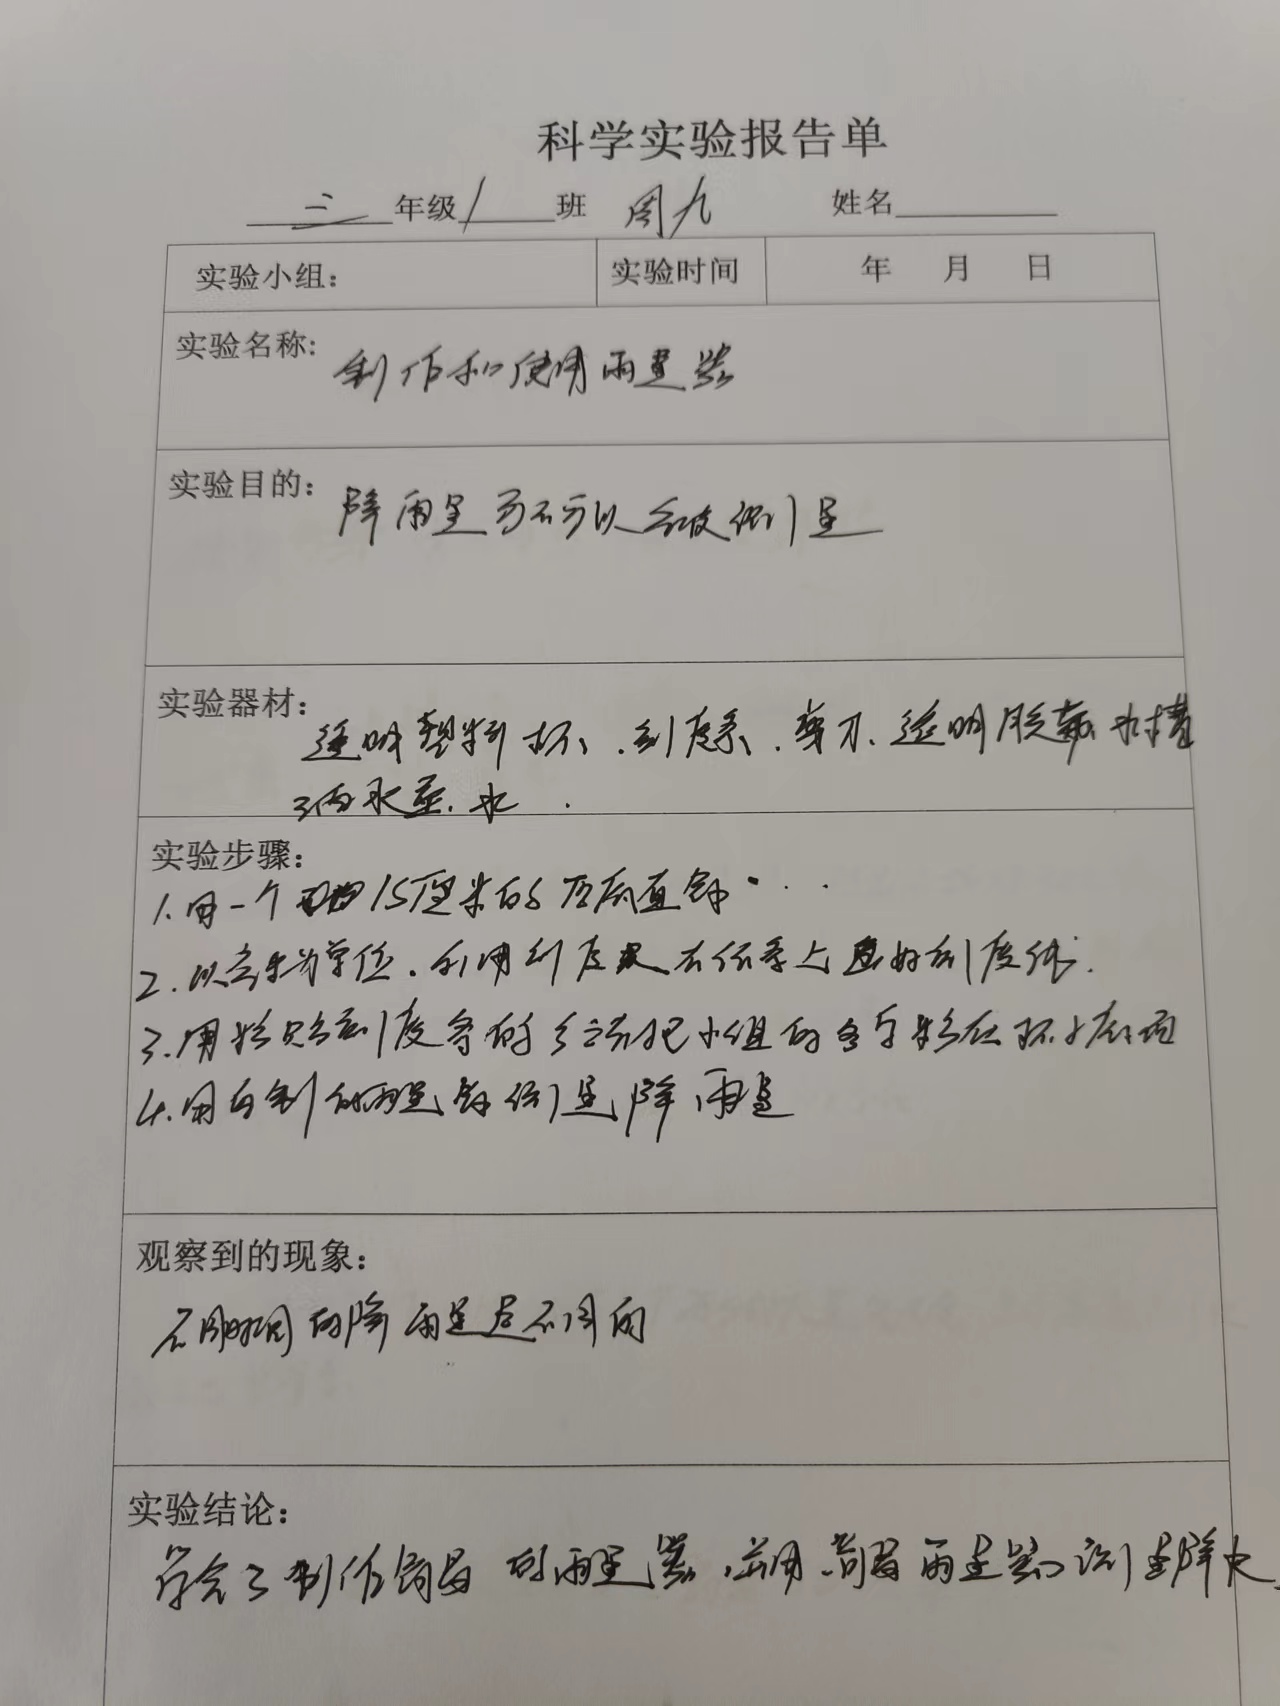 科学实验报告单
三年级1班 周九 姓名
实验小组： 实验时间 年 月 日
实验名称: 制作和使用雨量器
实验目的： 降雨量可不可以被测量
实验器材： 透明塑料杯、刻度条、剪刀、透明胶带 水槽
水
实验步骤：
1.用一个 15厘米的 直
2.以毫米为单位.利用刻度 在纸条上画好刻度
3.用 刻度条的 把小组的 在杯
4.用自制的雨量器测量降雨量
观察到的现象：
不同时间的降雨量是不同的
实验结论：
学会了制作简易的雨量器，并用简易雨量器测量降水